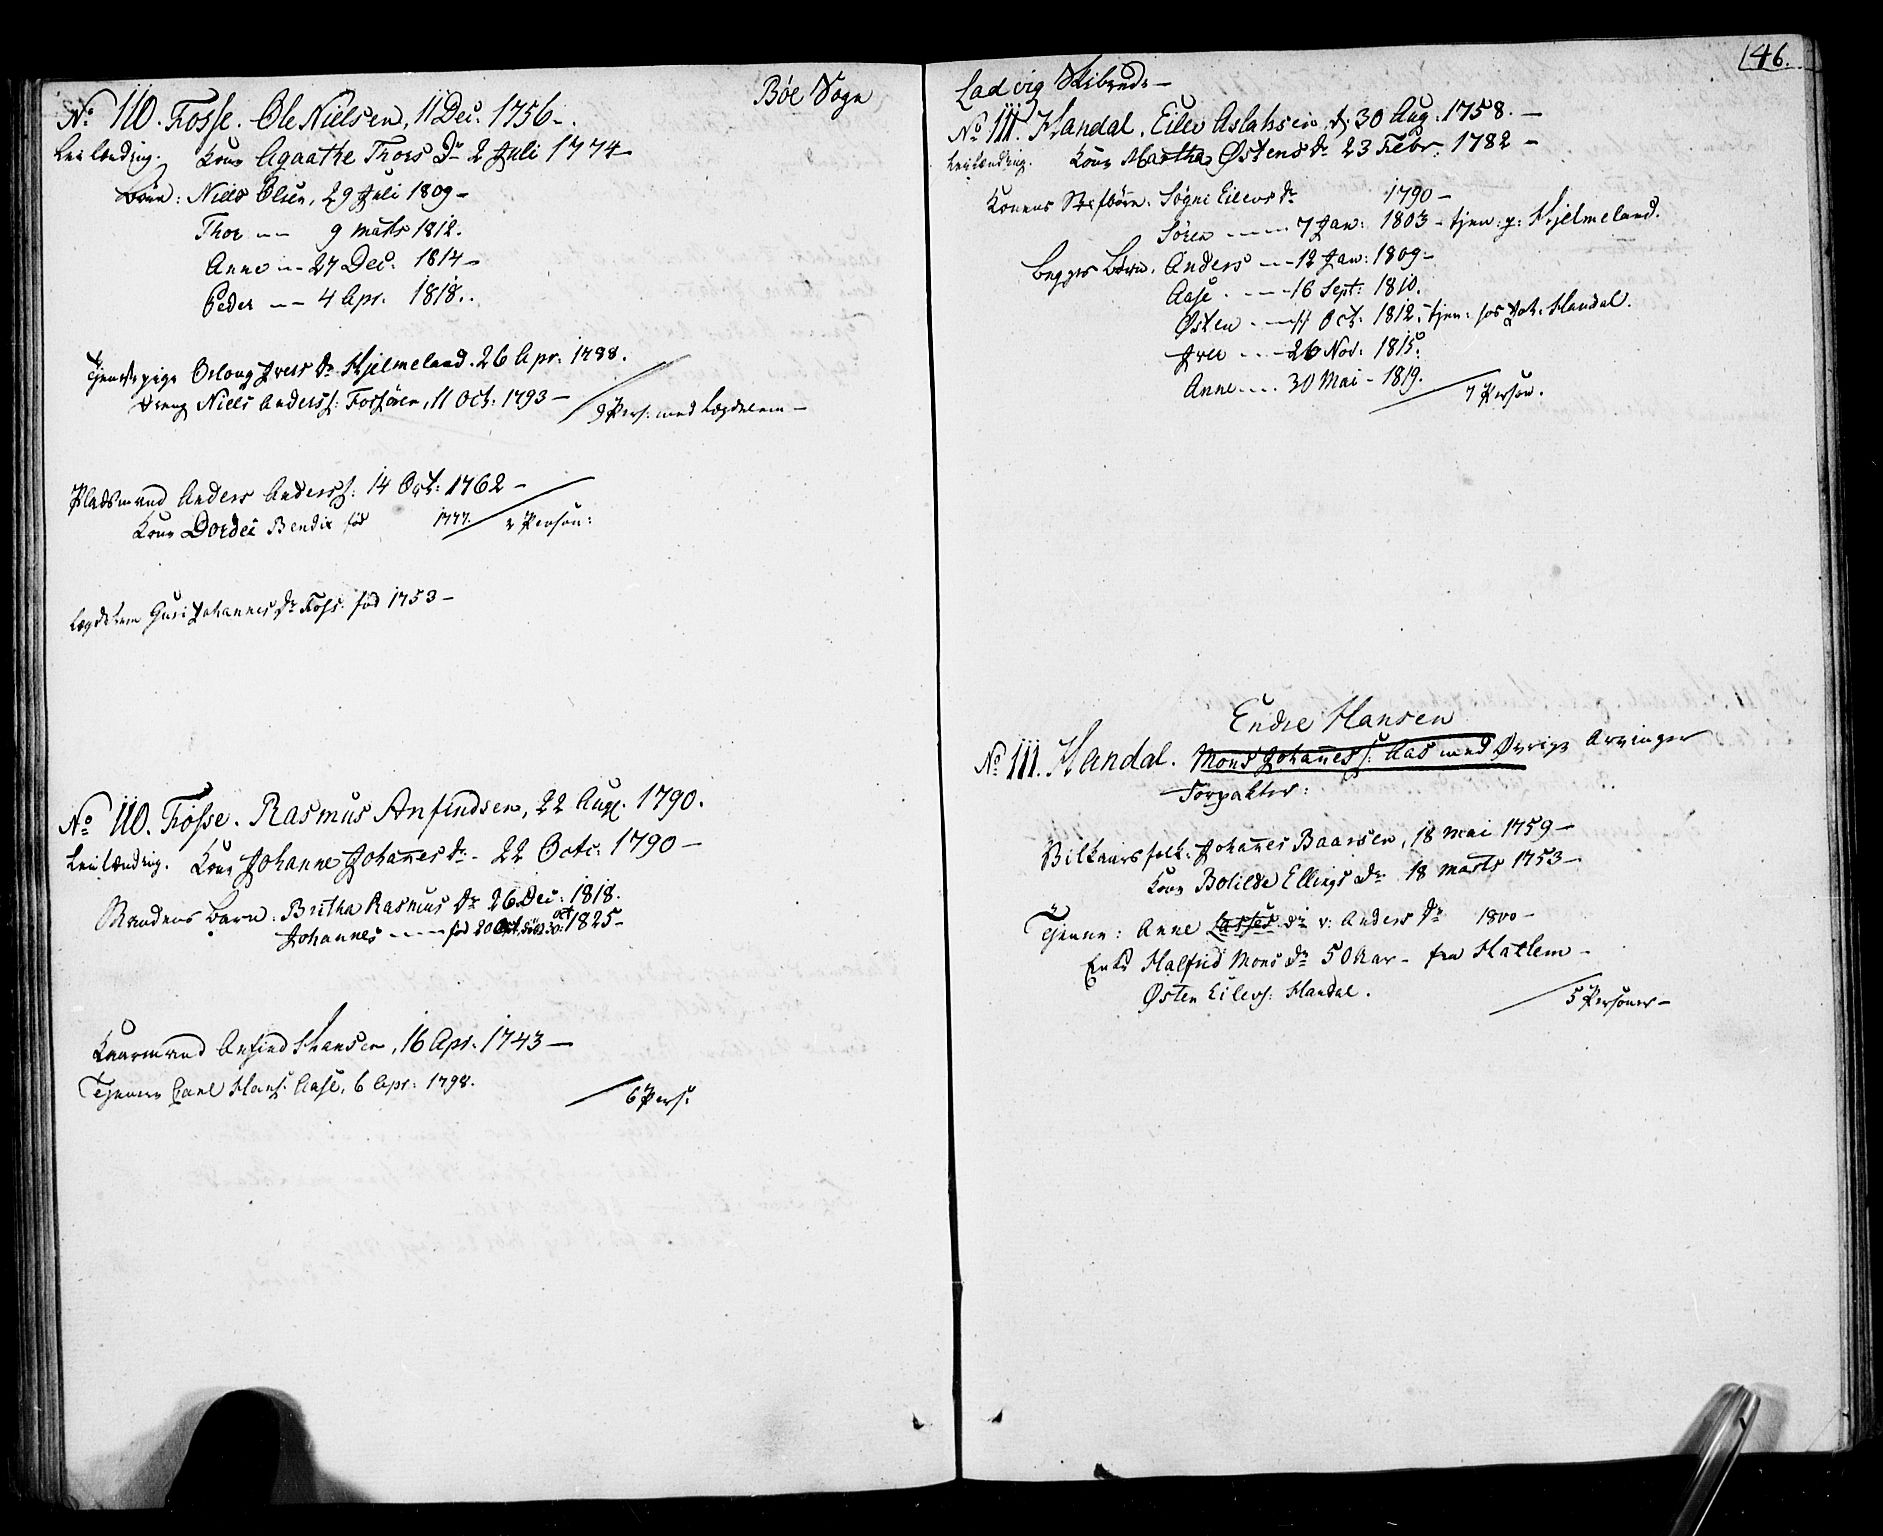 Bøe Sogn
No 110. Fosse. Ole Nielsen, 11 Dec. 1756 –
Leilænding. Kone Agaathe Thors Dr 2 Juli 1774 –
Børn: Niels Olsen, 29 Juli 1809 –
Thor – – 9 Marts 1812.
Anne – – 27 Dec. 1814 –
Peder – – 4 Apr. 1818.
Tjenestepige Orloug Ivers Dr Hjelmeland. 26 Apr. 1788.
Dreng Niels Anderss: Fossøren, 11 Oct. 1793 –
9 Pers: med Lægdelem –
Pladsmand Anders Anderss: 14 Oct: 1762 –
Kone Dordei Bendix fød 1777. 2 Person:
Lægdelem Guri Johannes Dr Foss. fød 1753 –
No 110. Fosse. Rasmus Anfindsen, 22 Aug. 1790.
Leilænding. Kone Johanne Johañes Dr – 22 Octr: 1790 –
Mandens Barn: Britha Rasmus Dr 26 Dec: 1818.
Johannes – – – – fød 20 Oct 1825 –
Kaarmand Anfind Hansen, 16 Apr. 1743 –
Tjenere Carl Hans. Aase, 6 Apr: 1798.
6 Pers:
146.
Ladvig Skibrede –
No 111. Handal. Eilev Aslaksen, d: 30 Aug. 1758. –
Leilænding. Kone Martha Østens Dr 23 Febr. 1782 –
Konens Stefbørn. Søgni Eilevs Dr 1790 –
Søren – – – – 7 Jan: 1803 – tjen: p: Hjelmeland.
Begges Børn. Anders – – 12 Jan: 1809 –
Aase – – – 16 Sept: 1810.
Østen – – – 11 Oct. 1812, tjen: hos Joh. Handal.
Iver – – – 26 Nov. 1815.
Anne – – – 30 Mai – 1819.
7 Person.
Endre Hansen
No 111. Handal. Mons Johañess: Aas med Øvrige Arvinger
Forpakter:
Vilkaarsfolk: Johañes Baarsen, 18 Mai 1759 –
Kone Bolilde Ellings Dr 18 Marts 1753 –
Tjenere: Anne Lasses Dr v: Anders Dr 1800 –
Enke Halfrid Mons Dr 50 Aar – fra Hatlem –
Østen Eilevs: Handal.
5 Personer –